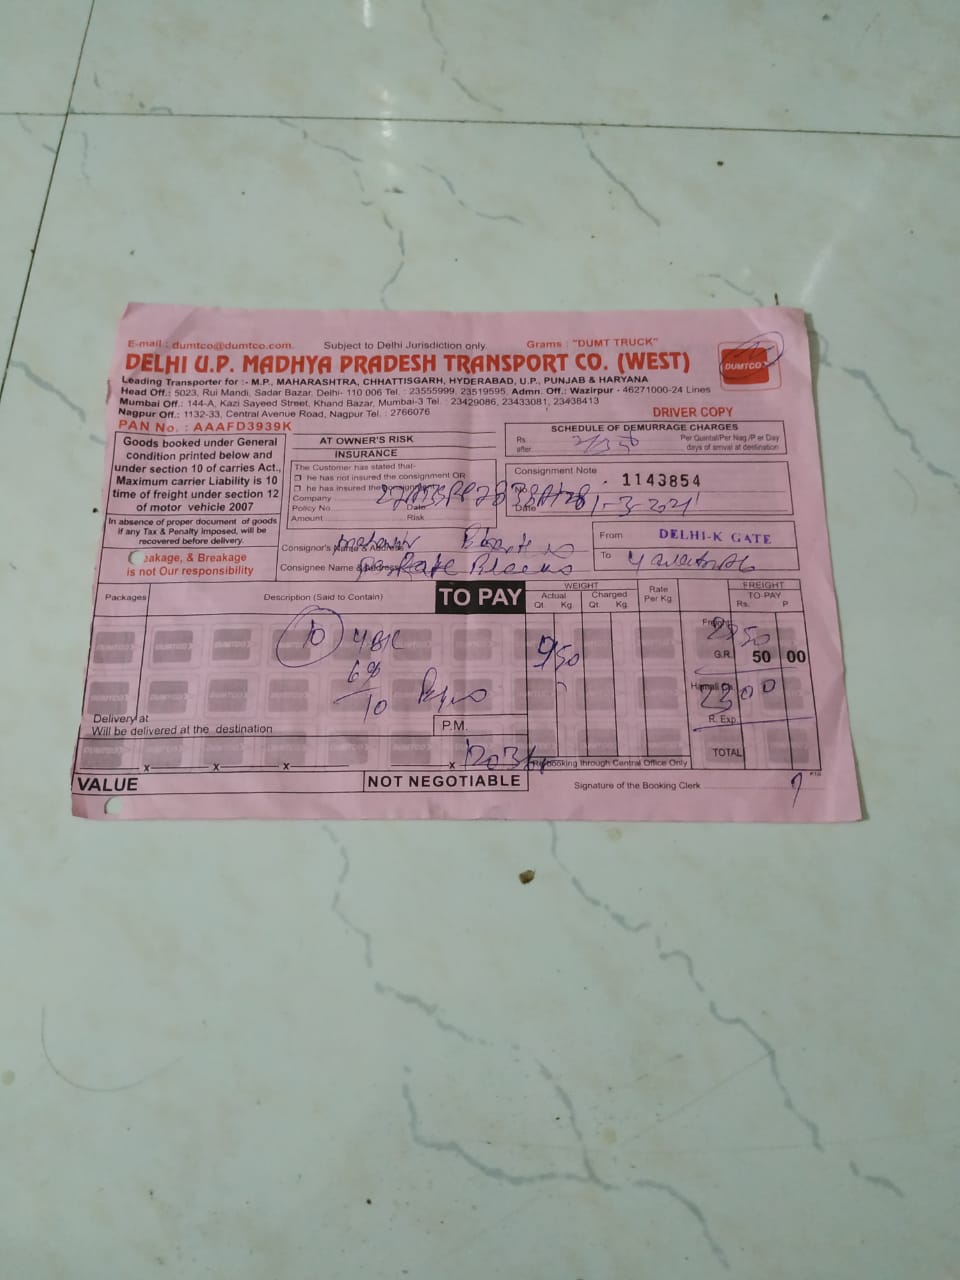 E-mail : dumtco@dumtco.com. Subject to Delhi Jurisdiction only. Grams : "DUMT TRUCK"
DELHI U.P. MADHYA PRADESH TRANSPORT CO. (WEST)
DUMTCO
Leading Transporter for :- M.P., MAHARASHTRA, CHHATTISGARH, HYDERABAD, U.P., PUNJAB & HARYANA
Head Off.: 5023, Rui Mandi, Sadar Bazar, Delhi- 110 006 Tel. : 23555999, 23519595, Admn. Off.: Wazirpur - 46271000-24 Lines
Mumbai Off.: 144-A, Kazi Sayeed Street, Khand Bazar, Mumbai-3 Tel. : 23429086, 23433081, 23438413
Nagpur Off.: 1132-33, Central Avenue Road, Nagpur Tel. : 2766076
DRIVER COPY
PAN No. : AAAFD3939K
Goods booked under General
condition printed below and
under section 10 of carries Act.,
Maximum carrier Liability is 10
time of freight under section 12
of motor vehicle 2007
In absence of proper document of goods
if any Tax & Penalty imposed, will be
recovered before delivery.
eakage, & Breakage
is not Our responsibility
AT OWNER'S RISK
INSURANCE
The Customer has stated that-
he has not insured the consignment OR
he has insured the
Company
Policy No. Date
Amount Risk
SCHEDULE OF DEMURRAGE CHARGES
Rs. Per Quintal/Per Nag./P er Day
after days of arrival at destination
Consignment Note
1143854
Date 1-3-2021
Consignor's Name & Address
Consignee Name & Address
From DELHI-K GATE
To
Packages Description (Said to Contain) TO PAY
WEIGHT
Actual Charged
Qt. Kg. Qt. Kg.
Rate
Per Kg.
FREIGHT
TO-PAY
Rs. P
10
950
Freight
G.R. 50 00
Hamali Ch.
R. Exp.
TOTAL
Delivery at
Will be delivered at the destination
P.M.
Rebooking through Central Office Only
VALUE
NOT NEGOTIABLE
Signature of the Booking Clerk